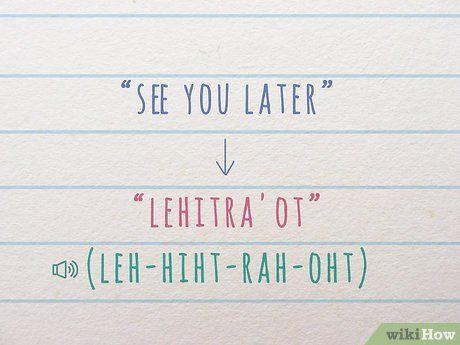 “SEE YOU LATER”
“LEHITRA'OT”
(LEH-HIHT-RAH-OHT)
wikiHow